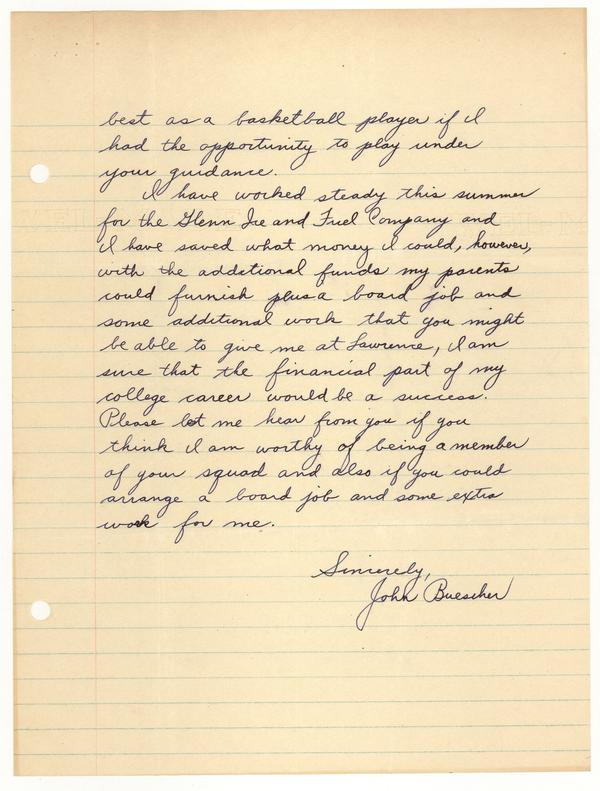 best as a basketball player if I
had the opportunity to play under
your guidance.
I have worked steady this summer
for the Glenn Ice and Fuel Company and
I have saved what money I could, however,
with the additional funds my parents
could furnish plus a board job and
some additional work that you might
be able to give me at Lawrence, I am
sure that the financial part of my
college career would be a success.
Please let me hear from you if you
think I am worthy of being a member
of your squad and also if you could
arrange a board job and some extra
work for me.
Sincerely,
John Buescher